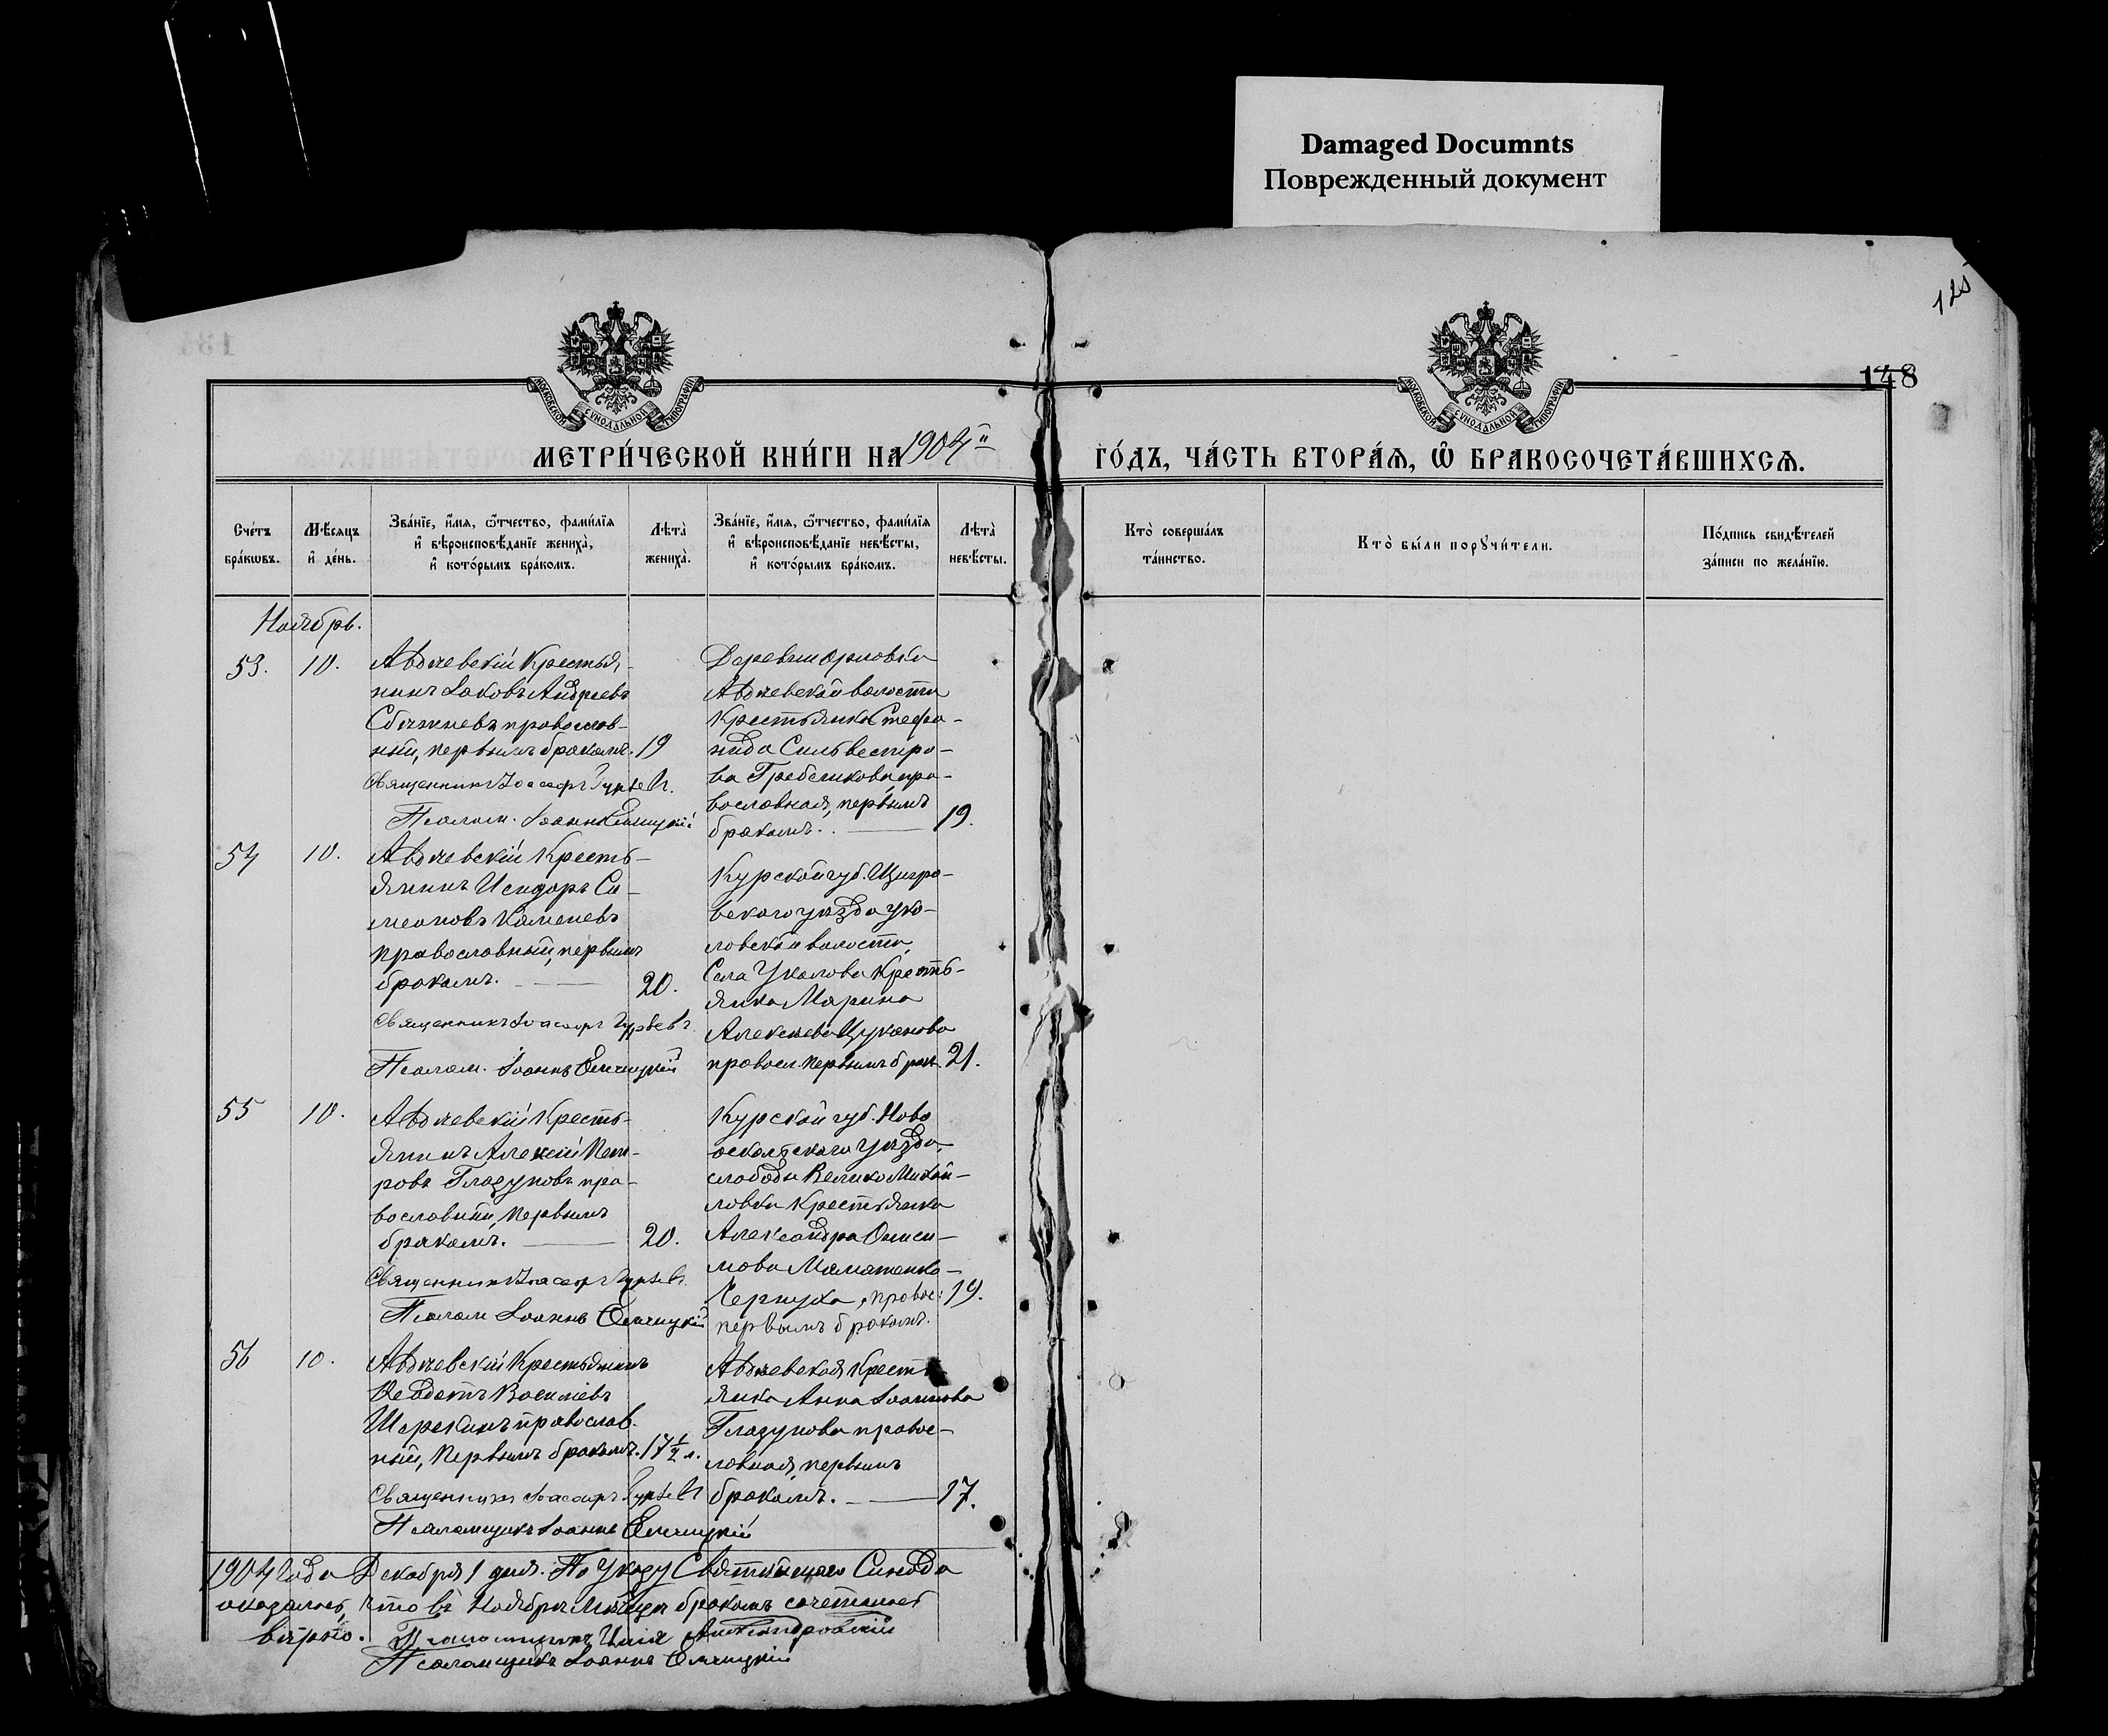 Damaged Documnts
Поврежденный документ
125
148
МЕТРИ́ЧЕСКОЙ КНИ́ГИ НА 1904й
ГО́ДЪ, ЧА́СТЬ ВТОРА́Я, Ѽ БРАКОСОЧЕТА́ВШИХСЯ.
Сче́тъ бра́кѡвъ.
Мѣ́сяцъ и҆ де́нь.
Зва́нїе, и҆́мя, ѻ҆́тчество, фами́лїя
и҆ вѣроисповѣ́данїе жениха̀,
и҆ кото́рымъ бра́комъ.
Лѣта̀ жениха̀.
Зва́нїе, и҆́мя, ѻ҆́тчество, фами́лїя
и҆ вѣроисповѣ́данїе невѣ́сты,
и҆ кото́рымъ бра́комъ.
Лѣта̀ невѣ́сты.
Кто̀ соверша́лъ
та́инство.
Кто̀ бы́ли порꙋчи́тели.
По́дпись свидѣ́телей
за́писи по жела́нїю.
Ноябрь.
53. 10.
Авдѣевскій Крестья-
нинъ Іаковъ Андреевъ
православ-
ный, первымъ бракомъ. 19
Священникъ Іоасафъ Гурьевъ.
Псалом. Іоаннъ
Деревни Орловки
Авдѣевской волости
Крестьянка Стефа-
нида Сильвестро-
ва Гребеникова пра-
вославная, первымъ
бракомъ. 19.
54 10.
Авдѣевскій Кресть-
янинъ Исидоръ Си-
меоновъ Каменевъ
православный, первымъ
бракомъ. 20.
Священникъ Іоасафъ Гурьевъ
Псалом. Іоаннъ
Курской губ. Щигро-
вскаго уѣзда Уко-
ловской волости,
Села Уколова Кресть-
янка Марина
Алексѣева Цуканова
правосл. первымъ брак. 21.
55 10.
Авдѣевскій Кресть-
янинъ Алексій Пет-
ровъ Глазуновъ пра-
вославный, первымъ
бракомъ. 20.
Священникъ Іоасафъ Гурьевъ
Псалом Іоаннъ
Курской губ. Ново
оскольскаго уѣзда,
слободы Велико Михай-
ловки Крестьянка
АлександраОниси-
мова
правос: 19.
первымъ бракомъ.
56 10.
Авдѣевскій Крестьянинъ
Ѳеодотъ Василіевъ
Шарекинъ православ-
ный, первымъ бракомъ. 17 1/2 л.
Священникъ Іоасафъ Гурьевъ
Псаломщикъ Іоаннъ
Авдѣевская Крест
янка Анна Іоаннова
Глазунова правос-
лавная, первымъ
бракомъ. 17.
1904 года Декабря 1 дня. По Указу Святѣйшаго Синода
оказалось, что въ Ноябрѣ мѣсяцѣ бракомъ сочетались
вѣрно. Александровскій
Псаломщикъ Іоаннъ